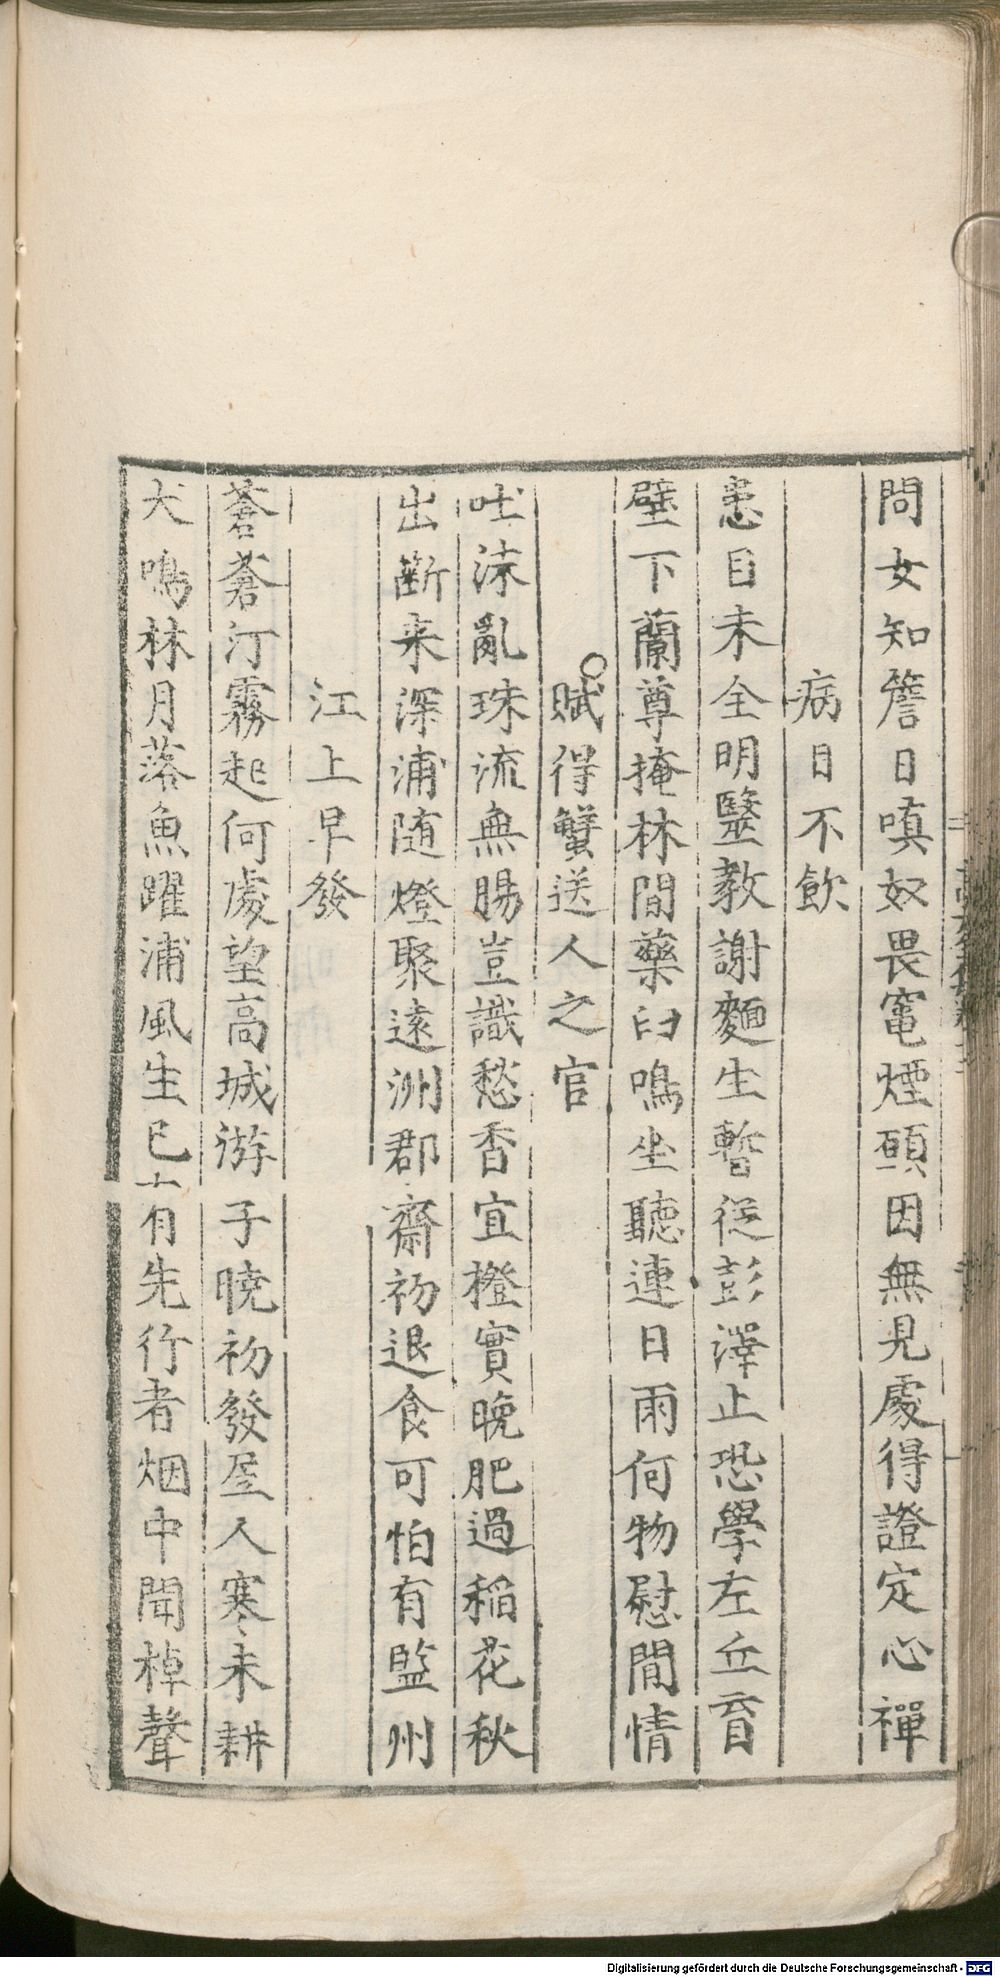 問女知簷日嗔奴畏竈煙頭因無見處得證定心禪
病目不飲
患目未全明毉教謝麵生暫從彭澤止恐學左丘盲
壁下蘭尊掩林間藥臼鳴坐聽連日雨何物慰閒情
賦得蟹送人之官
吐沫亂珠流無腸豈識愁香宜橙實晚肥過稻花秋
出籪来深浦随燈聚遠洲郡齋初退食可怕有監州
江上早發
蒼蒼汀霧起何處望高城游子曉初發居人寒未耕
犬鳴林月落魚躍浦風生已有先行者烟中聞棹聲
Digitalisierung gefördert durch die Deutsche Forschungsgemeinschaft - DFG